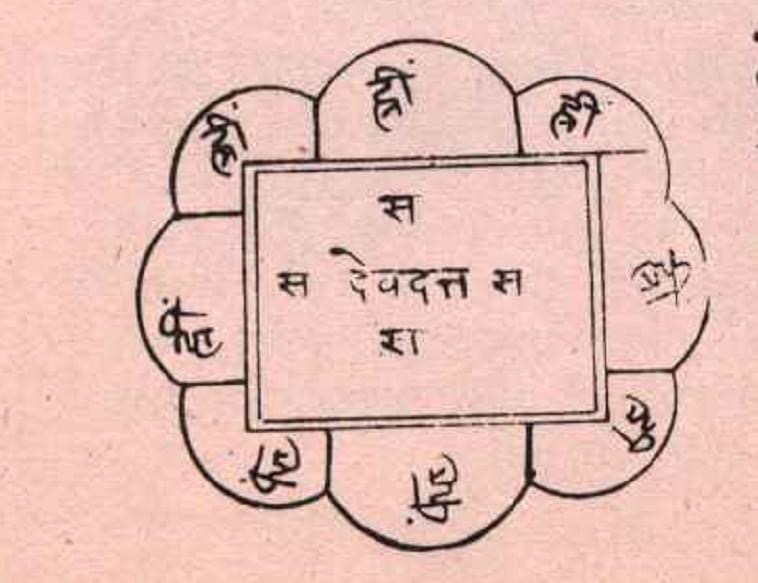 ह्रीं
ह्रीं
ह्रीं
स
स देवदत्त स
स
ह्रीं
ह्रीं
ह्रीं
ह्रीं